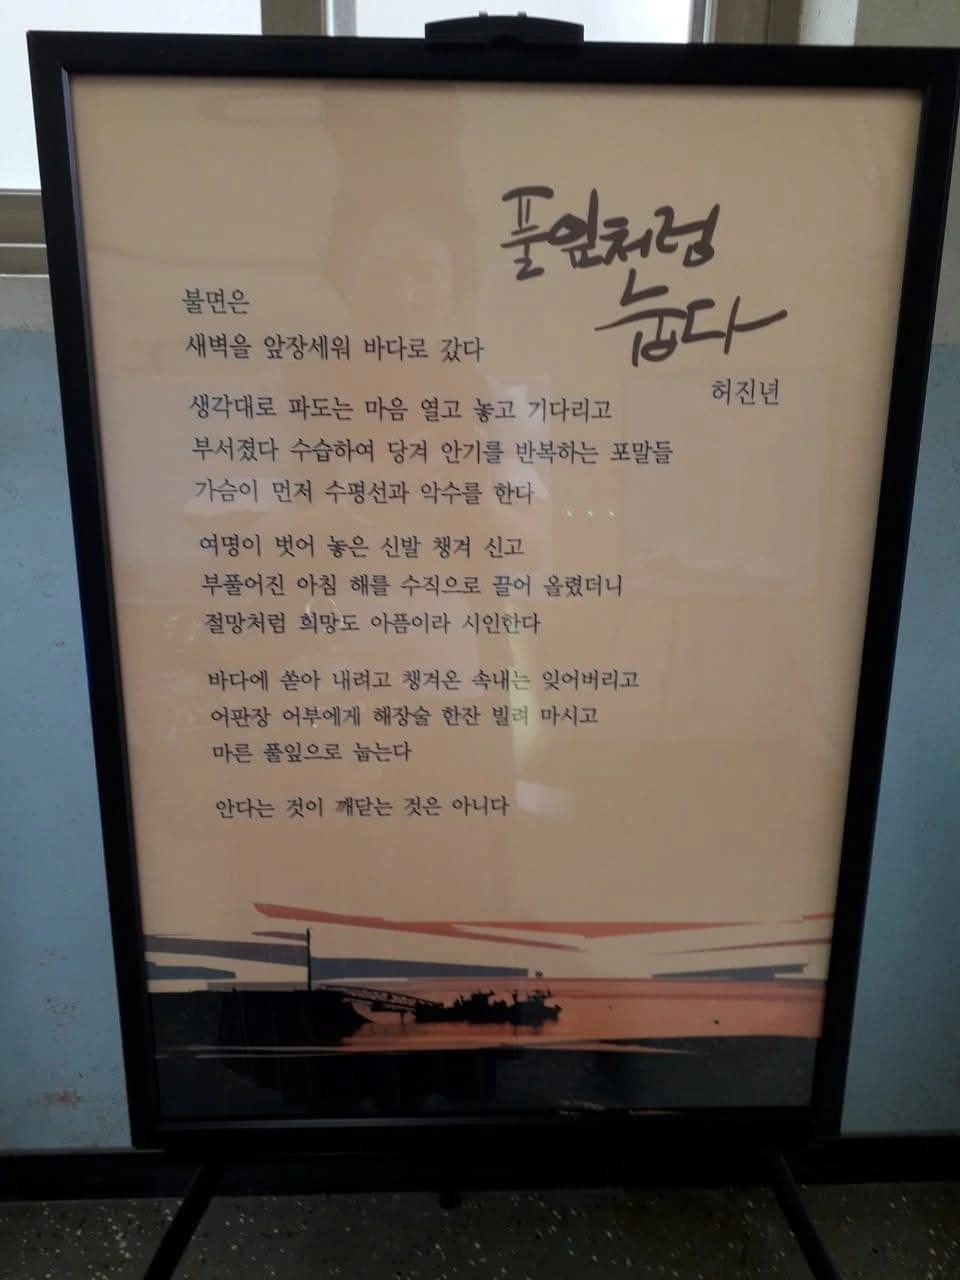 풀잎처럼
눕다
허진년
불면은
새벽을 앞장세워 바다로 갔다
생각대로 파도는 마음 열고 놓고 기다리고
부서졌다 수습하여 당겨 안기를 반복하는 포말들
가슴이 먼저 수평선과 악수를 한다
여명이 벗어 놓은 신발 챙겨 신고
부풀어진 아침 해를 수직으로 끌어 올렸더니
절망처럼 희망도 아픔이라 시인한다
바다에 쏟아 내려고 챙겨온 속내는 잊어버리고
어판장 어부에게 해장술 한잔 빌려 마시고
마른 풀잎으로 눕는다
안다는 것이 깨닫는 것은 아니다